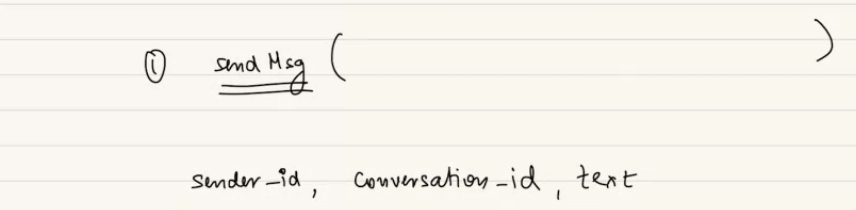 ① send Msg ( )
sender_id, conversation_id, text